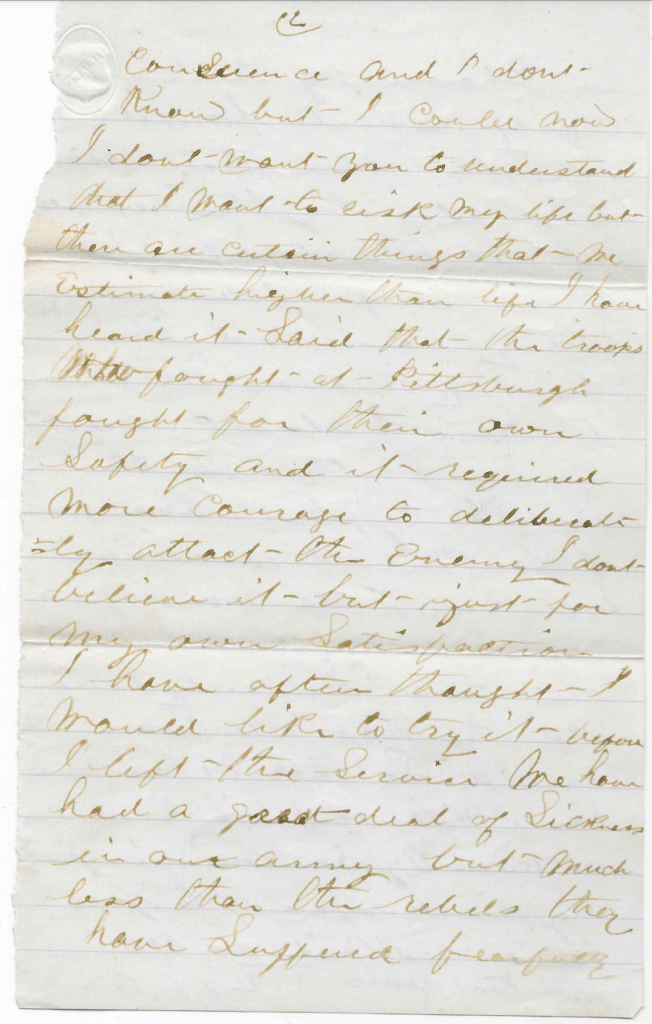 2
Conscience and I dont
Know but I could now
I dont want you to understand
that I want to risk my life but
there are certain things that we
Estimate higher than life I have
heard it Said that the troops
Who fought at Pittsburgh
fought for their own
Safety and it required
more courage to deliberate
=ly attact the Enemy I dont
believe it but just for
my own Satisfaction
I have often thought I
would like to try it before
I left the Service We have
had a great deal of Sickness
in our army but much
less than the rebels they
have Suffered fearfully